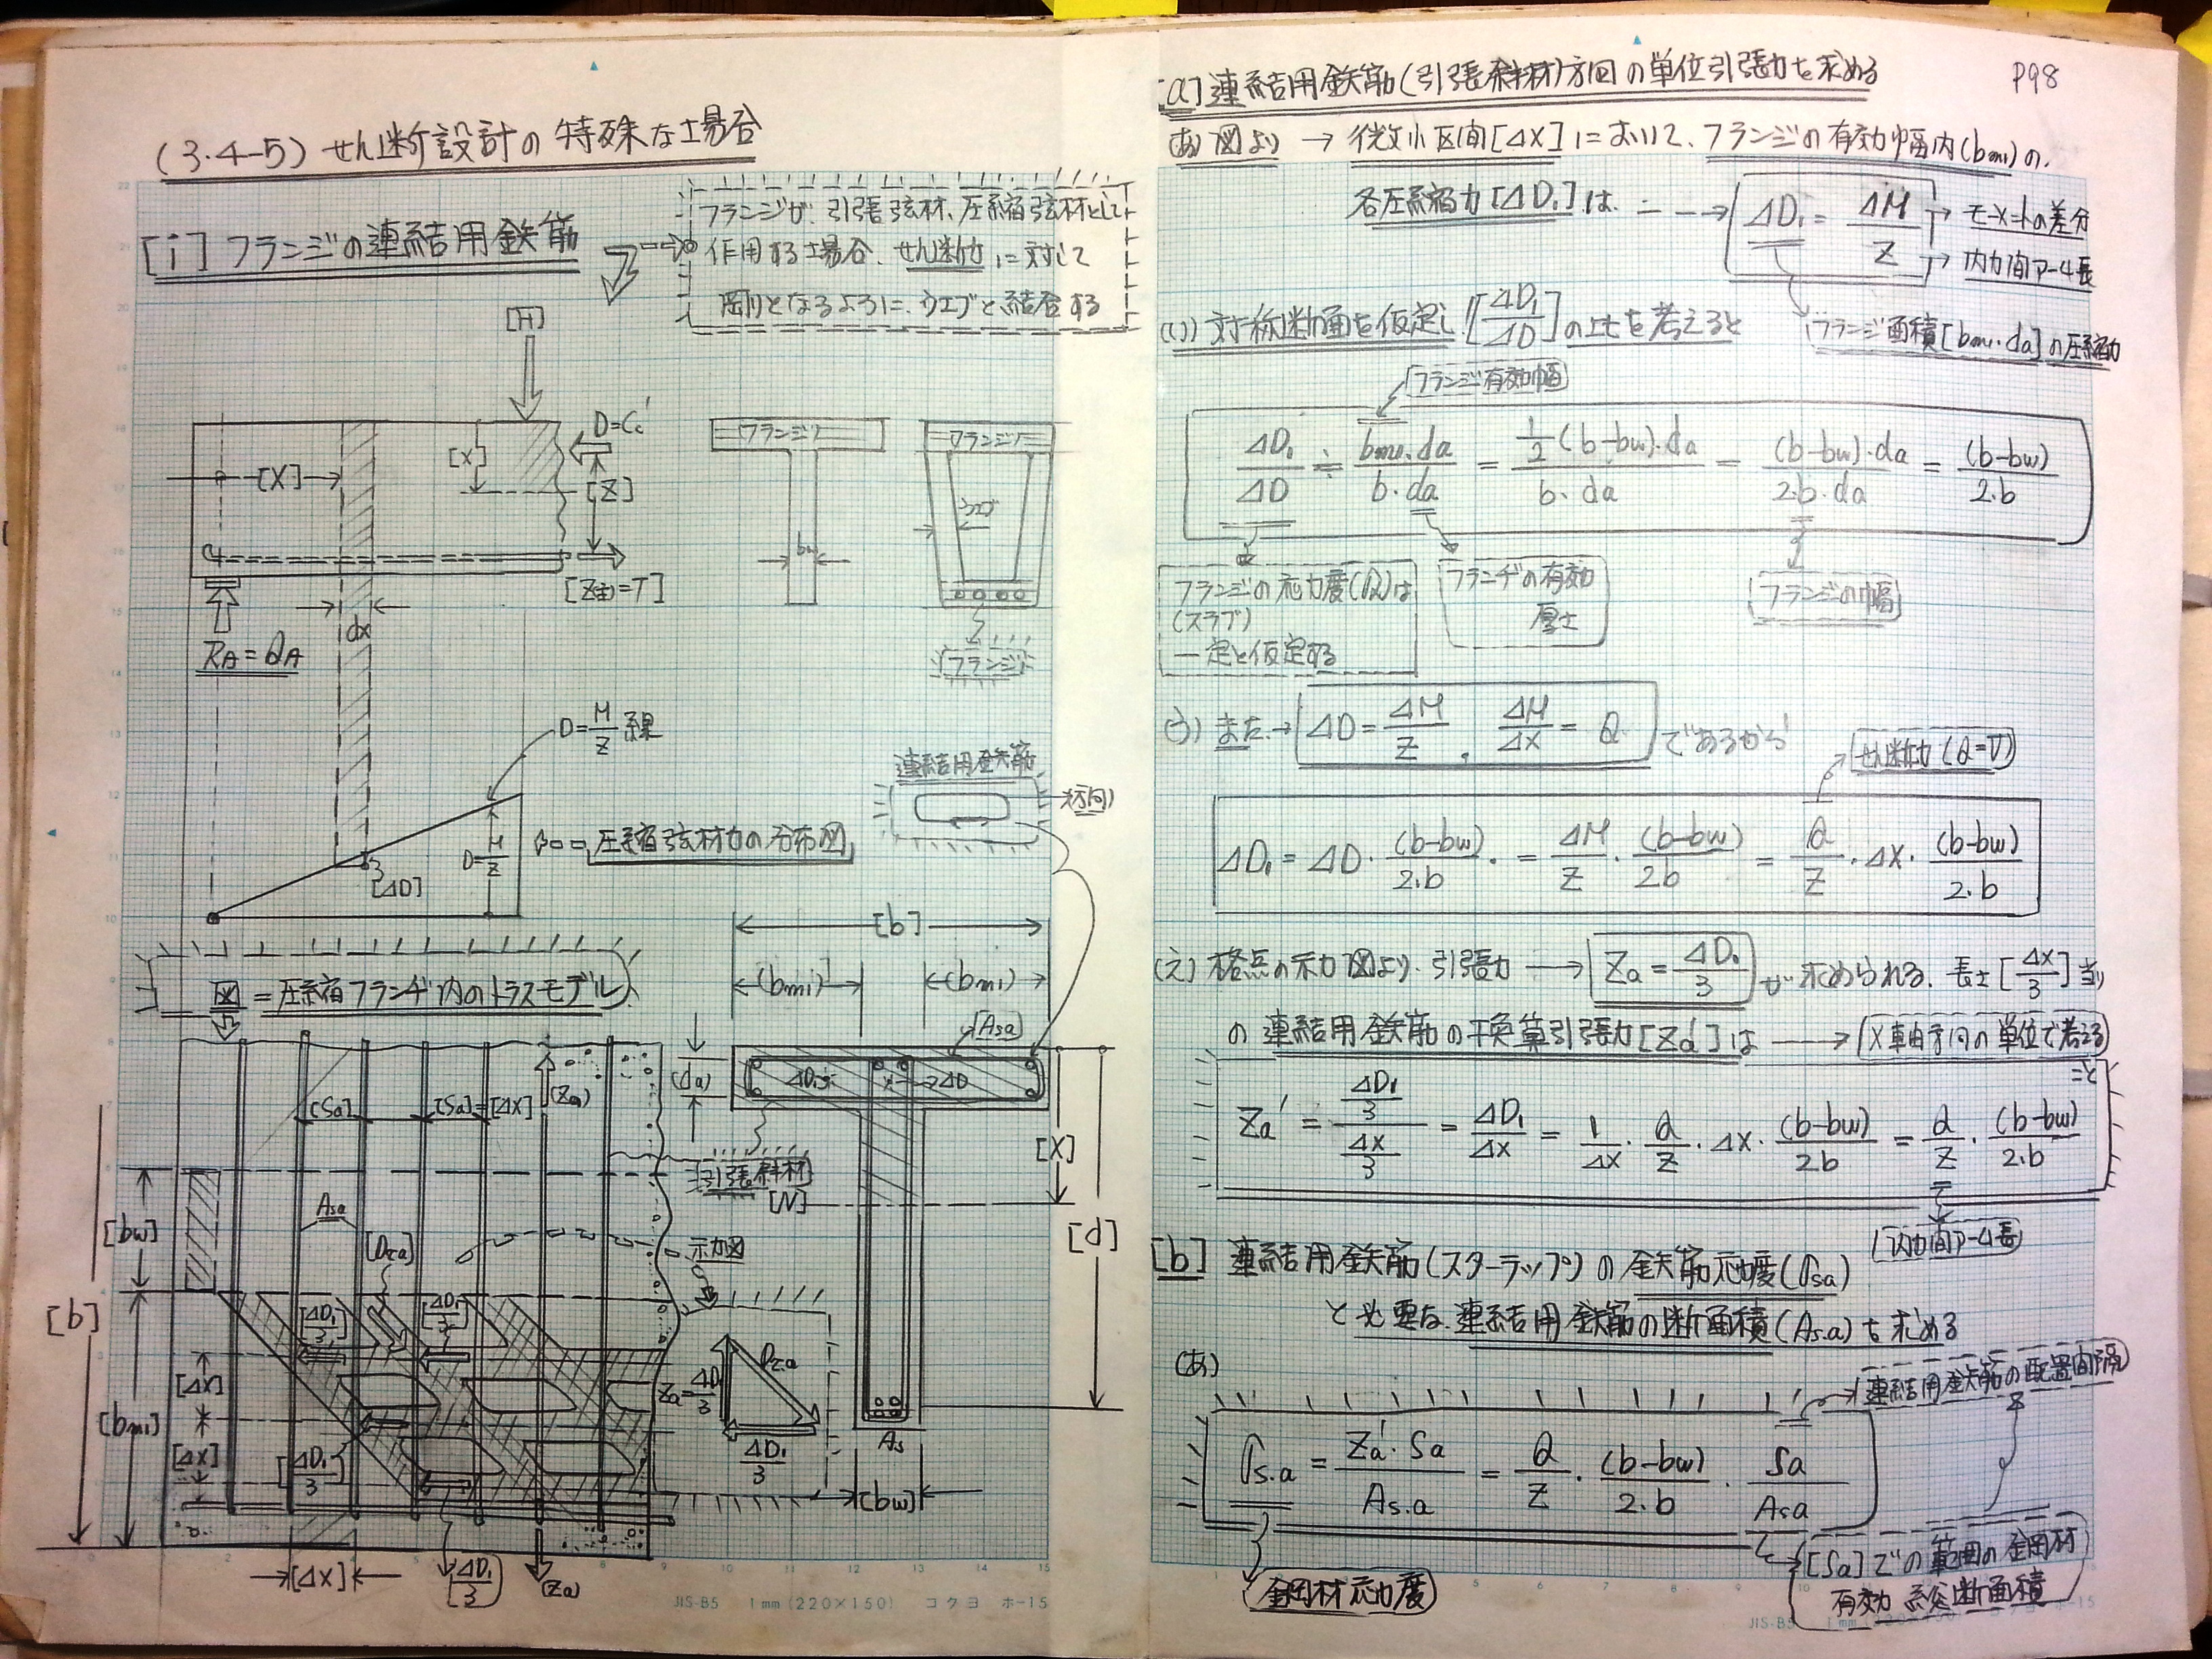 (3.4-5) せん断設計の特殊な場合
[i] フランジの連結用鉄筋
フランジが、引張弦材、圧縮弦材として
作用する場合、せん断力に対して
剛となるように、ウエブと結合する
[H]
D=Cc'
[X]
[X]
[Z]
[Z主)=T]
RA=QA
dx
フランジ
bw
フランジ
ウエブ
フランジ
D=M/Z 線
D=M/Z
[ΔD]
圧縮弦材力の分布図
連結用鉄筋
図=圧縮フランヂ内のトラスモデル
[b]
(bm1)
(bm1)
[Asa]
(da)
ΔD1
ΔD
[X]
[d]
引張斜材
[N]
As
[bw]
(Sa)
(Sa)=[ΔX]
(Za)
Asa
[Dza]
示力図
[bw]
[b]
[bm1]
[ΔX]
[ΔX]
[ΔD1/3]
[ΔD1/3]
[ΔD1/3]
Za=ΔD1/3
Dza
ΔD1/3
[ΔX]
[ΔD1/3]
(Za)
JIS-B5 1mm(220×150) コクヨ ホ-15
P98
[a] 連結用鉄筋(引張斜材)方向の単位引張力を求める
(あ) 図より → 微小区間[ΔX]において、フランジの有効幅内(bm1)の、
各圧縮力[ΔD1]は --→ ΔD1 = ΔM/Z
モーメントの差分
内力間アーム長
フランジ面積[bm1・da]の圧縮力
(い) 対称断面を仮定し[ΔD1/ΔD]の比を考えると
フランジ有効幅
ΔD1/ΔD ≒ bm1・da/b・da = 1/2(b-bw)・da/b・da = (b-bw)・da/2・b・da = (b-bw)/2・b
フランジの応力度(σ)は
(スラブ)
一定と仮定する
フランヂの有効
厚さ
フランジの幅
(う) また→ ΔD=ΔM/Z, ΔM/ΔX = Q であるから
せん断力(Q=V)
ΔD1 = ΔD・(b-bw)/2・b = ΔM/Z・(b-bw)/2b = Q/Z・ΔX・(b-bw)/2・b
(え) 格点の示力図より、引張力 → Za = ΔD1/3 が求められる、長さ[ΔX/3]当り
の連結用鉄筋の換算引張力[Za']は → X軸方向の単位で考える
と
Za' = ΔD1/3 / ΔX/3 = ΔD1/ΔX = 1/ΔX・Q/Z・ΔX・(b-bw)/2b = Q/Z・(b-bw)/2・b
内力間アーム長
[b] 連結用鉄筋(スターラップ)の鉄筋応力度(σsa)
と必要な連結用鉄筋の断面積(As.a)を求める
(あ)
連結用鉄筋の配置間隔
σs.a = Za'・Sa/As.a = Q/Z・(b-bw)/2・b・Sa/Asa
鋼材応力度
[Sa]での範囲の鋼材
有効総断面積